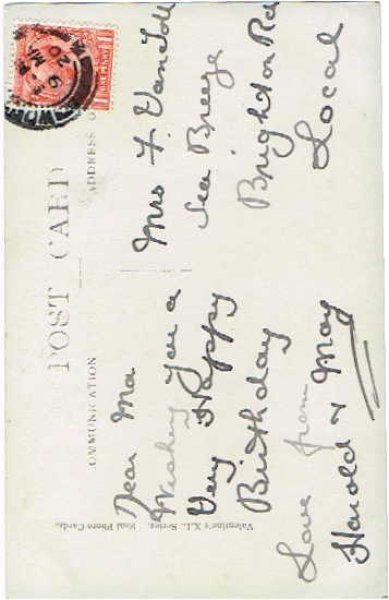 POST CARD
COMMUNICATION
ADDRESS
Dear Ma
Wishing You a
Very Happy
Birthday
Love from
Harold & May
Mrs F. Van
Sea Breeze
Brighton Rd
Local
Valentine's X.L. Series. Real Photo Cards.
ONE PENNY
MA
20